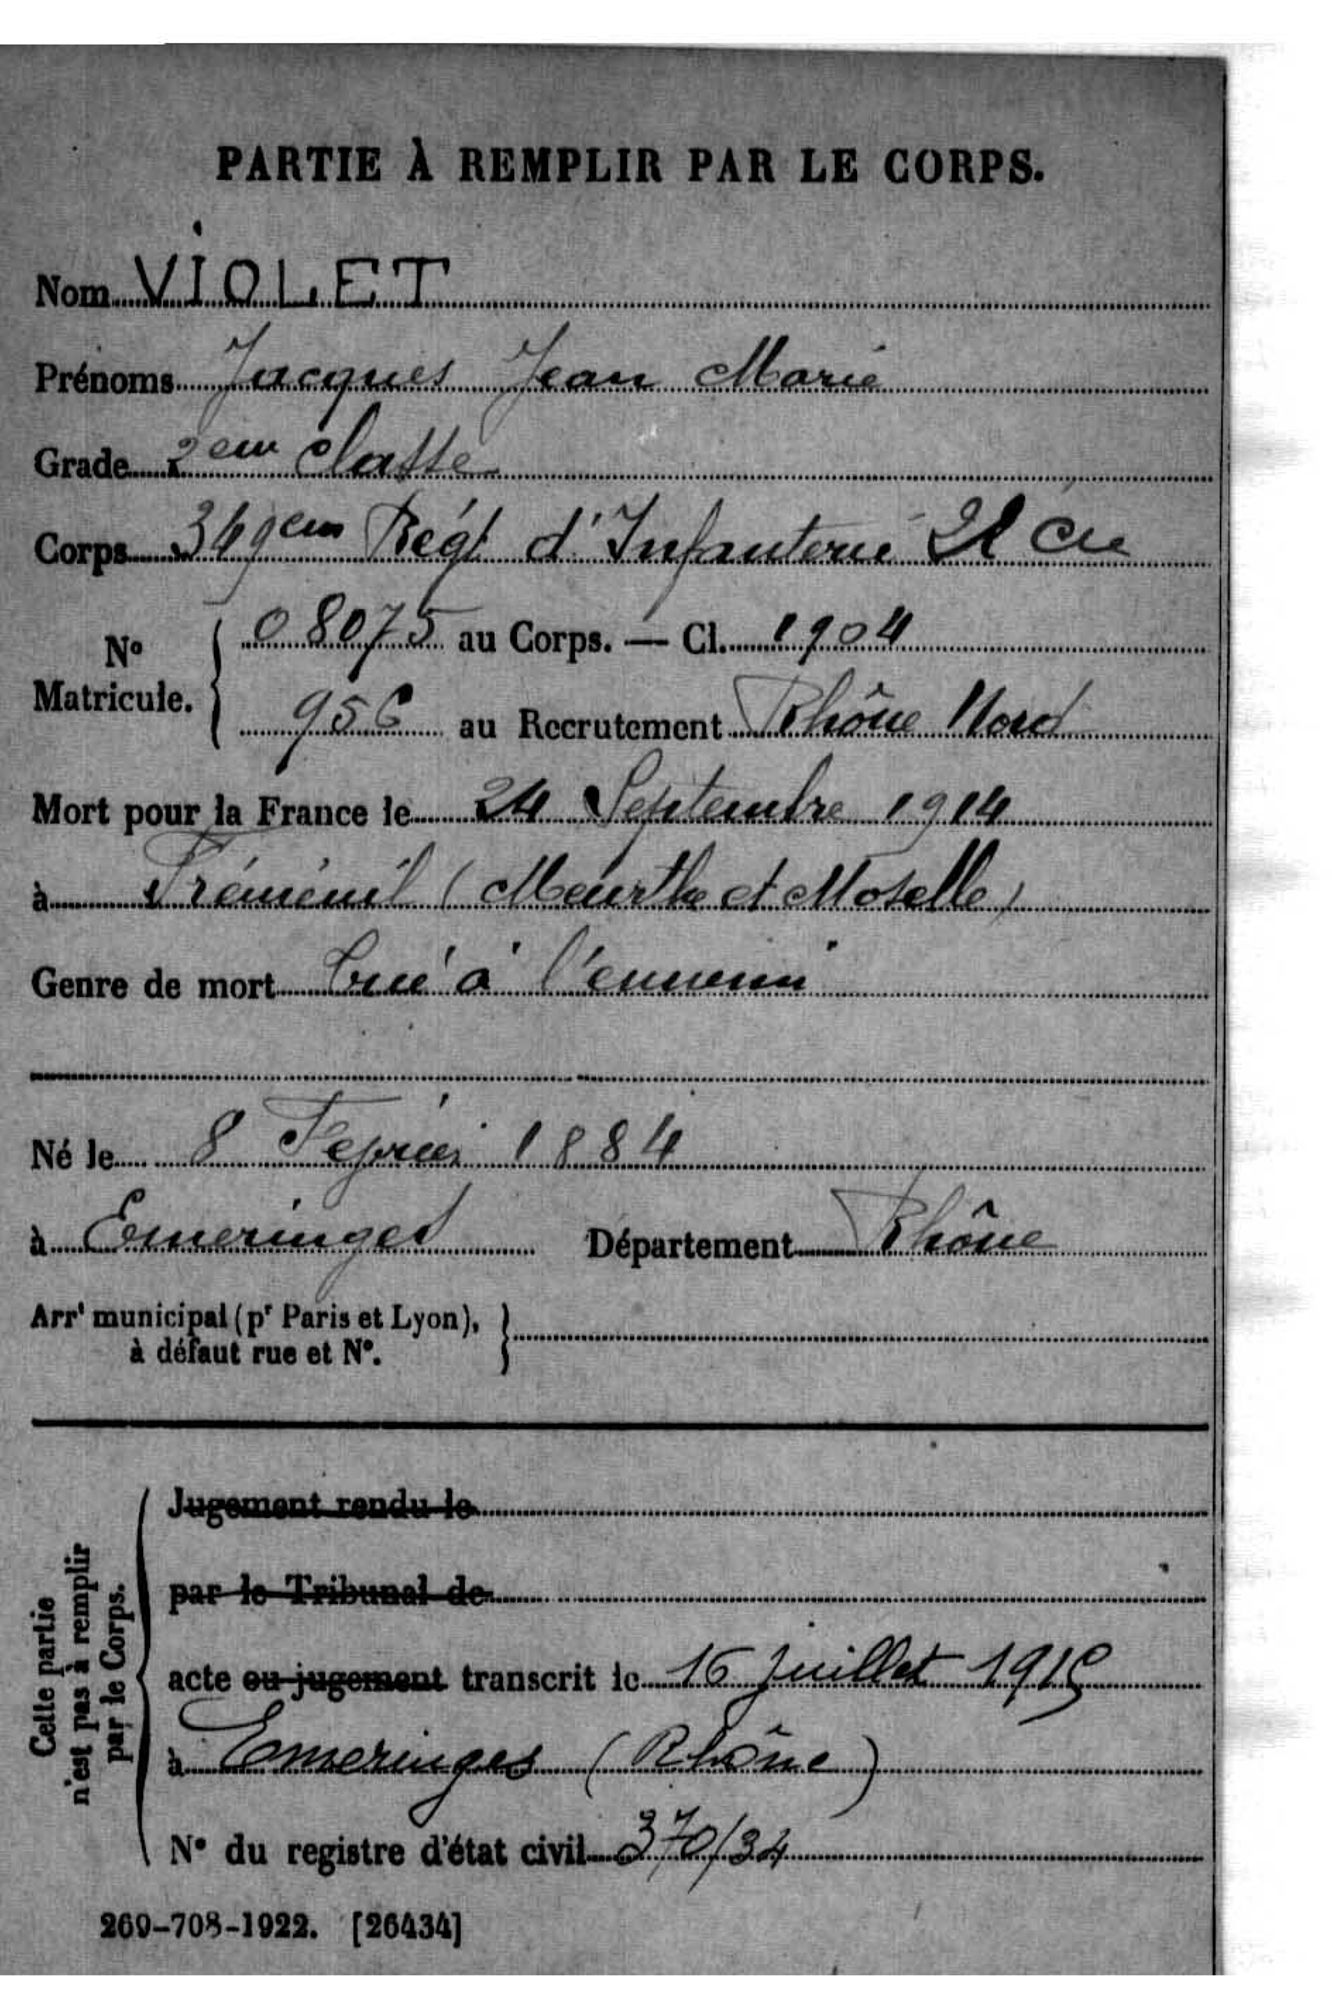 PARTIE À REMPLIR PAR LE CORPS.
Nom VIOLET
Prénoms Jacques Jean Marie
Grade 2eme classe
Corps 349eme Régt d'Infanterie 22 Cie
N° Matricule. { 08075 au Corps. — Cl. 1904
956 au Recrutement Rhône Nord
Mort pour la France le 24 Septembre 1914
à Fréménil (Meurthe et Moselle)
Genre de mort tué à l'ennemi
Né le 8 Février 1884
à Emeringes Département Rhône
Arrt municipal (pr Paris et Lyon), à défaut rue et N°. }
Jugement rendu le
par le Tribunal de
acte ou jugement transcrit le 16 juillet 1915
à Emeringes (Rhône)
N° du registre d'état civil 370/34
Cette partie n'est pas à remplir par le Corps.
269-708-1922. [26434]